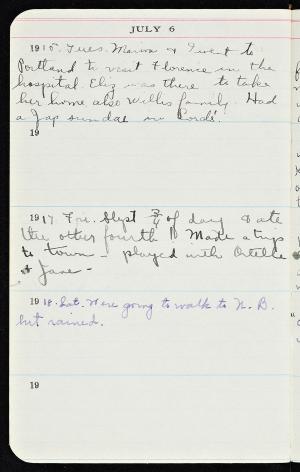 JULY 6
1915. Tues. Marion & I went to
Portland to visit Florence in the
hospital. Eliz was there to take
her home also Willis family. Had
a Jap sundae in Fords'.
19
1917 Fri. Slept 3/4 of day & ate
the other fourth!! Made a trip
to town - played with
& Jane -
1918. Sat. Were going to walk to N. B.
but rained.
19